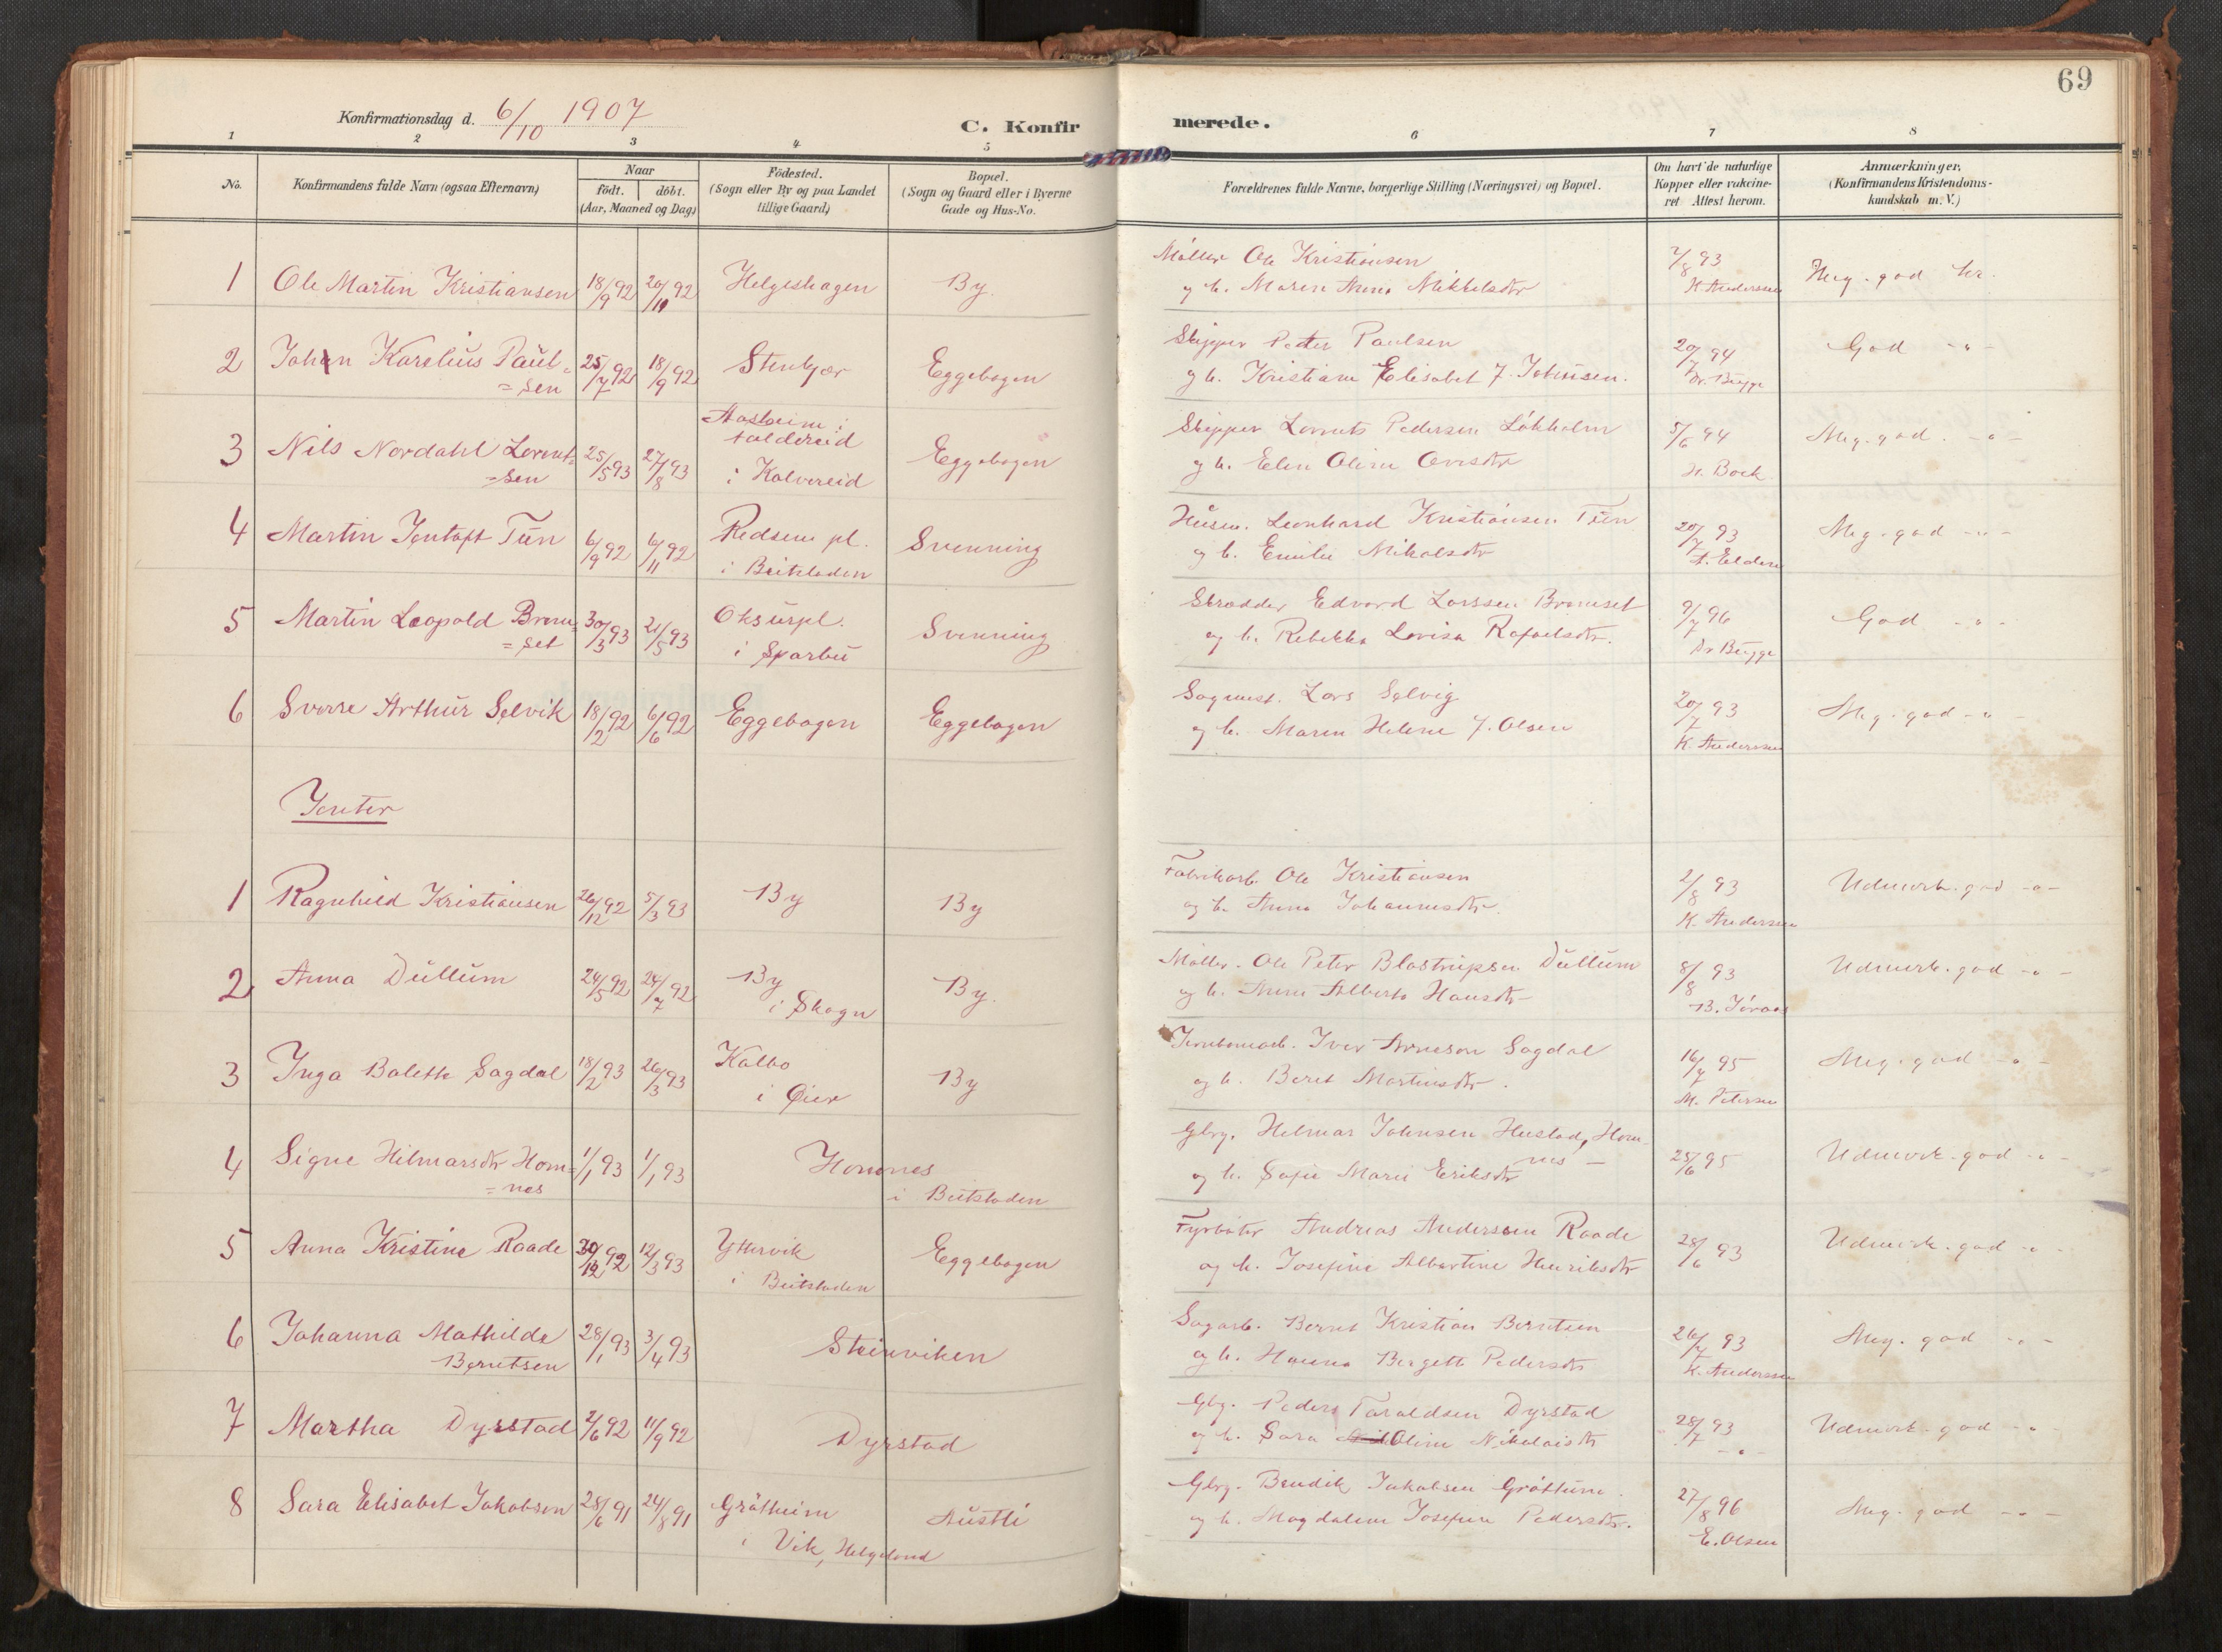 69
Konfirmationsdag d. 6/10 1907
C. Konfirmerede.
1 2 3 4 5 6 7 8
No.
Konfirmandens fulde Navn (ogsaa Efternavn)
Naar
födt. döbt.
(Aar, Maaned og Dag)
Födested.
(Sogn eller By og paa Landet
tillige Gaard)
Bopæl.
(Sogn og Gaard eller i Byerne
Gade og Hus-No.
Forældrenes fulde Navne, borgerlige Stilling (Næringsvei) og Bopæl.
Om havt de naturlige
Kopper eller vakcine-
ret Attest herom.
Anmærkninger,
(Konfirmandens Kristendoms-
kundskab m. V.)
1 Ole Martin Kristiansen 18/9 92 20/11 92 Helgeshagen By.
Möller Ole Kristiansen
og h. Maren Anna Mikkelsdtr
2/8 93
K Anderssen
Meg. god
2 Johan Karelius Paul-
=sen 25/7 92 18/9 92 Stenkjær Eggebogen
Skipper Peter Paulsen
og h. Kristiane Elisabet f. Johnsen.
20/7 94
Dr. Bugge
God - " -
3 Nils Nordahl Lorent-
=sen 25/5 93 27/8 93
i Kolvereid Eggebogen
Skipper Lorents Pedersen Lökholm
og h. Elen Oline
5/6 94
Dr. Bock
Meg. god. - " -
4 Martin Jentoft Tün 6/9 92 6/11 92 Redsem pl.
i Beitstaden Svenning
Hüsm. Leonhard Kristiansen Tün
og h. Emilie Nikolsdtr
20/7 93
A. Elden
Meg. god - " -
5 Martin Leopold Brem=
=set 30/3 93 21/5 93 Oksürpl.
i Sparbü Svenning
Skrædder Edvard Larssen Bremset
og h. Rebekka Lovisa Rafaelsdtr.
9/7 96
Dr Bugge
God - " -
6 Sverre Arthür Selvik 18/2 92 6/6 92 Eggebogen Eggebogen
Sagmest. Lars Selvig
og h. Maren Helene f. Olsen
20/7 93
K. Anderssen
Meg. god - " -
Jenter
1 Ragnhild Kristiansen 26/12 92 5/3 93 By By
Fabrikarb. Ole Kristiansen
og h. Anna Johannesdtr.
2/8 93
K. Anderssen
Udmerk. god - " -
2 Anna Düllüm 24/5 92 24/7 92 By
i Skogn By.
Möller. Ole Peter Blastrupsen Düllüm
og h. Anne Alberta Hansdtr
8/8 93
Udmerk. god - " -
3 Inga Baletta Sagdal 18/2 93 26/3 93 Kalbo
i Öier By
Jernbanearb. Iver Arneson Sagdal
og h. Beret Martinsdtr.
16/7 95
M. Petersen
Meg. god - " -
4 Signe Hilmarsdtr Hom=
=nes 1/1 93 1/1 93 Homnes
i Beitstaden
Gbrg. Hilmar Johnsen Hustad, Hom-
nes -
og h. Sofie Marie Eriksdtr
25/6 95
Udmerk. god - " -
5 Anna Kristine Raade 30/12 92 12/3 93 Yttervik
i Beitstaden Eggebogen
Fyrböter Andreas Anderssen Raade
og h. Josefine Albertine Henriksdtr
28/6 93
Udmerk. god - " -
6 Johanna Mathilde
Berntsen 28/1 93 3/4 93 Steinviken
Sagarb. Bernt Kristian Berntsen
og h. Hanna Bergette Pedersdtr
26/7 93
K. Anderssen
Meg. god - " -
7 Martha Dyrstad 2/6 92 11/9 92 Dyrstad
Gbg. Peder Taraldsen Dyrstad
og h. Sara Oline Nikolaisdtr
28/7 93
- " -
Udmerk. god - " -
8 Sara Elisabet Jakobsen 28/6 91 24/8 91 Gråtheim
i Vik, Helgeland Aüstli
Gbrg. Bendik Jakobsen
og h. Magdalene Josefine Pedersdtr.
27/8 96
E. Olsen
Meg. god - " -